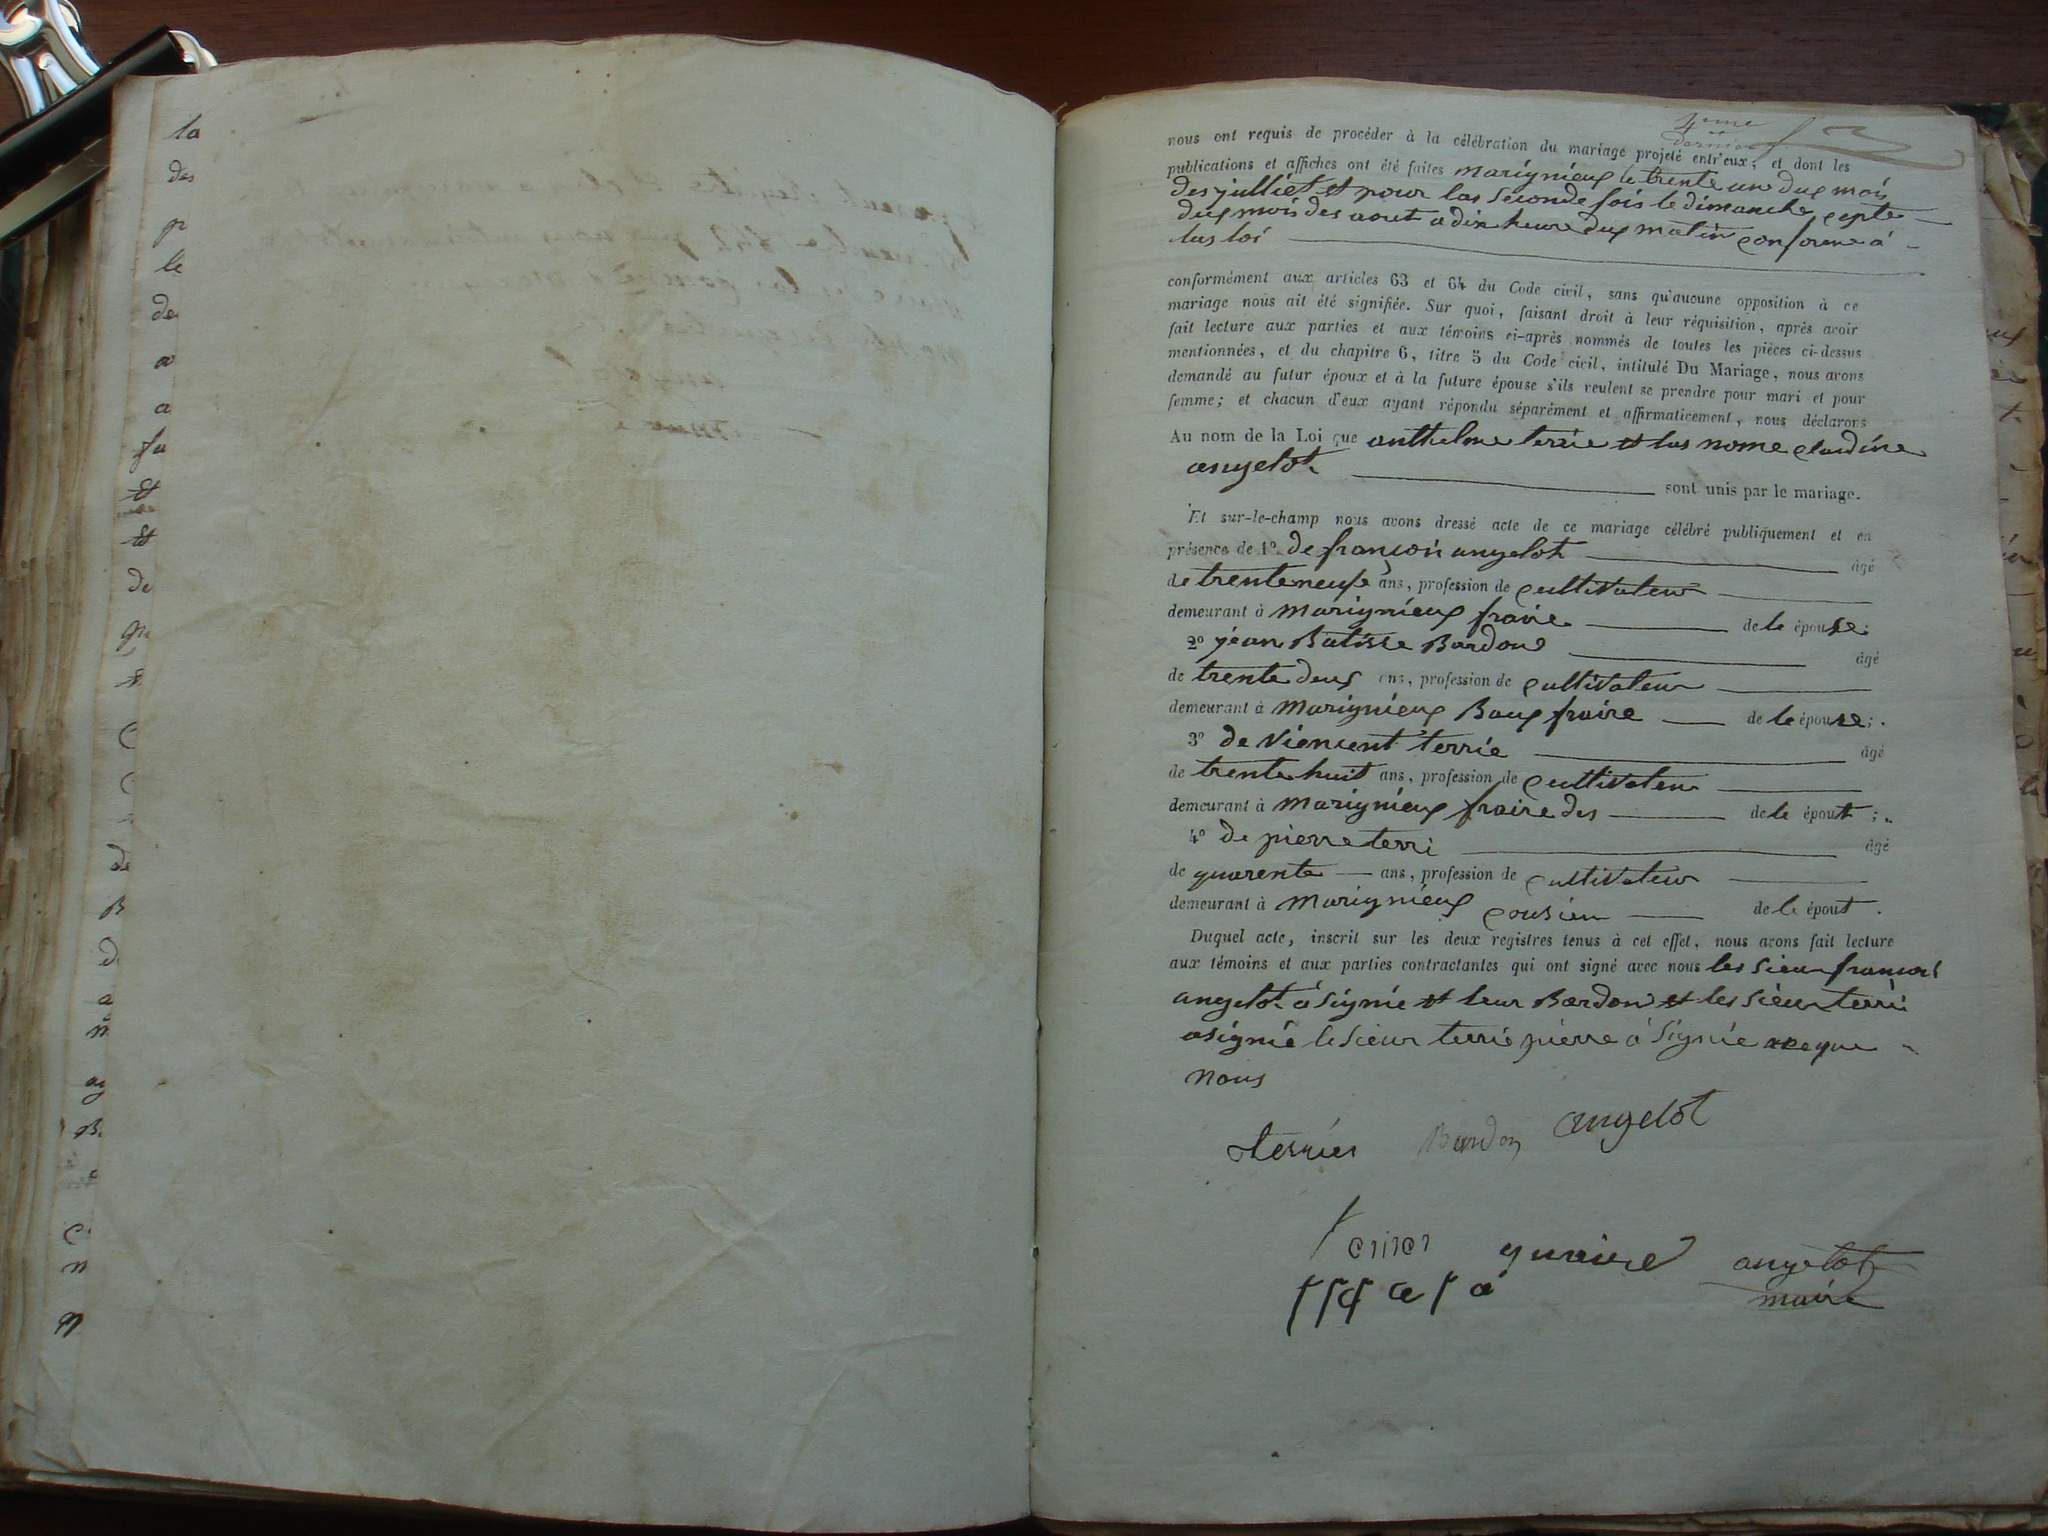 la
des
p
le
de
a
a
fu
et
et
de
B
a
n
ag
B
n
4eme
dernier
nous ont requis de procéder à la célébration du mariage projeté entr'eux, et dont les
publications et affiches ont été faites marignieux le trente un dux mois
des julliet et pour las seconde fois le dimanche cepte
dux mois des aout a dix heure dux matin conforme a
las loi
conformément aux articles 63 et 64 du Code civil, sans qu'aucune opposition à ce
mariage nous ait été signifiée. Sur quoi, faisant droit à leur réquisition, après avoir
fait lecture aux parties et aux témoins ci-après nommés de toutes les pièces ci-dessus
mentionnées, et du chapitre 6, titre 5 du Code civil, intitulé Du Mariage, nous avons
demandé au futur époux et à la future épouse s'ils veulent se prendre pour mari et pour
femme; et chacun d'eux ayant répondu séparément et affirmativement, nous déclarons
Au nom de la Loi que anthelme terrie et las nome claudine
angelot sont unis par le mariage.
Et sur-le-champ nous avons dressé acte de ce mariage célébré publiquement et en
présence de 1º de françois angelot âgé
de trente neufs ans, profession de cultivateur
demeurant à marignieux fraire de le épouse;
2º jean Batisse Bardon âgé
de trente deux ans, profession de cultivateur
demeurant à marignieux Baux fraire de le épouse;
3º de viencent terrie âgé
de trente huit ans, profession de cultivateur
demeurant à marignieux fraire des de le épout;
4º de pierre terri âgé
de quarente ans, profession de cultivateur
demeurant à marignieux cousien de le épout.
Duquel acte, inscrit sur les deux registres tenus à cet effet, nous avons fait lecture
aux témoins et aux parties contractantes qui ont signé avec nous les sieur francois
angelot à signie et leur Bardon et les sieur terri
a signie le sieur terrie pierre à signie
nous
terrier Bardon angelot
angelot
maire